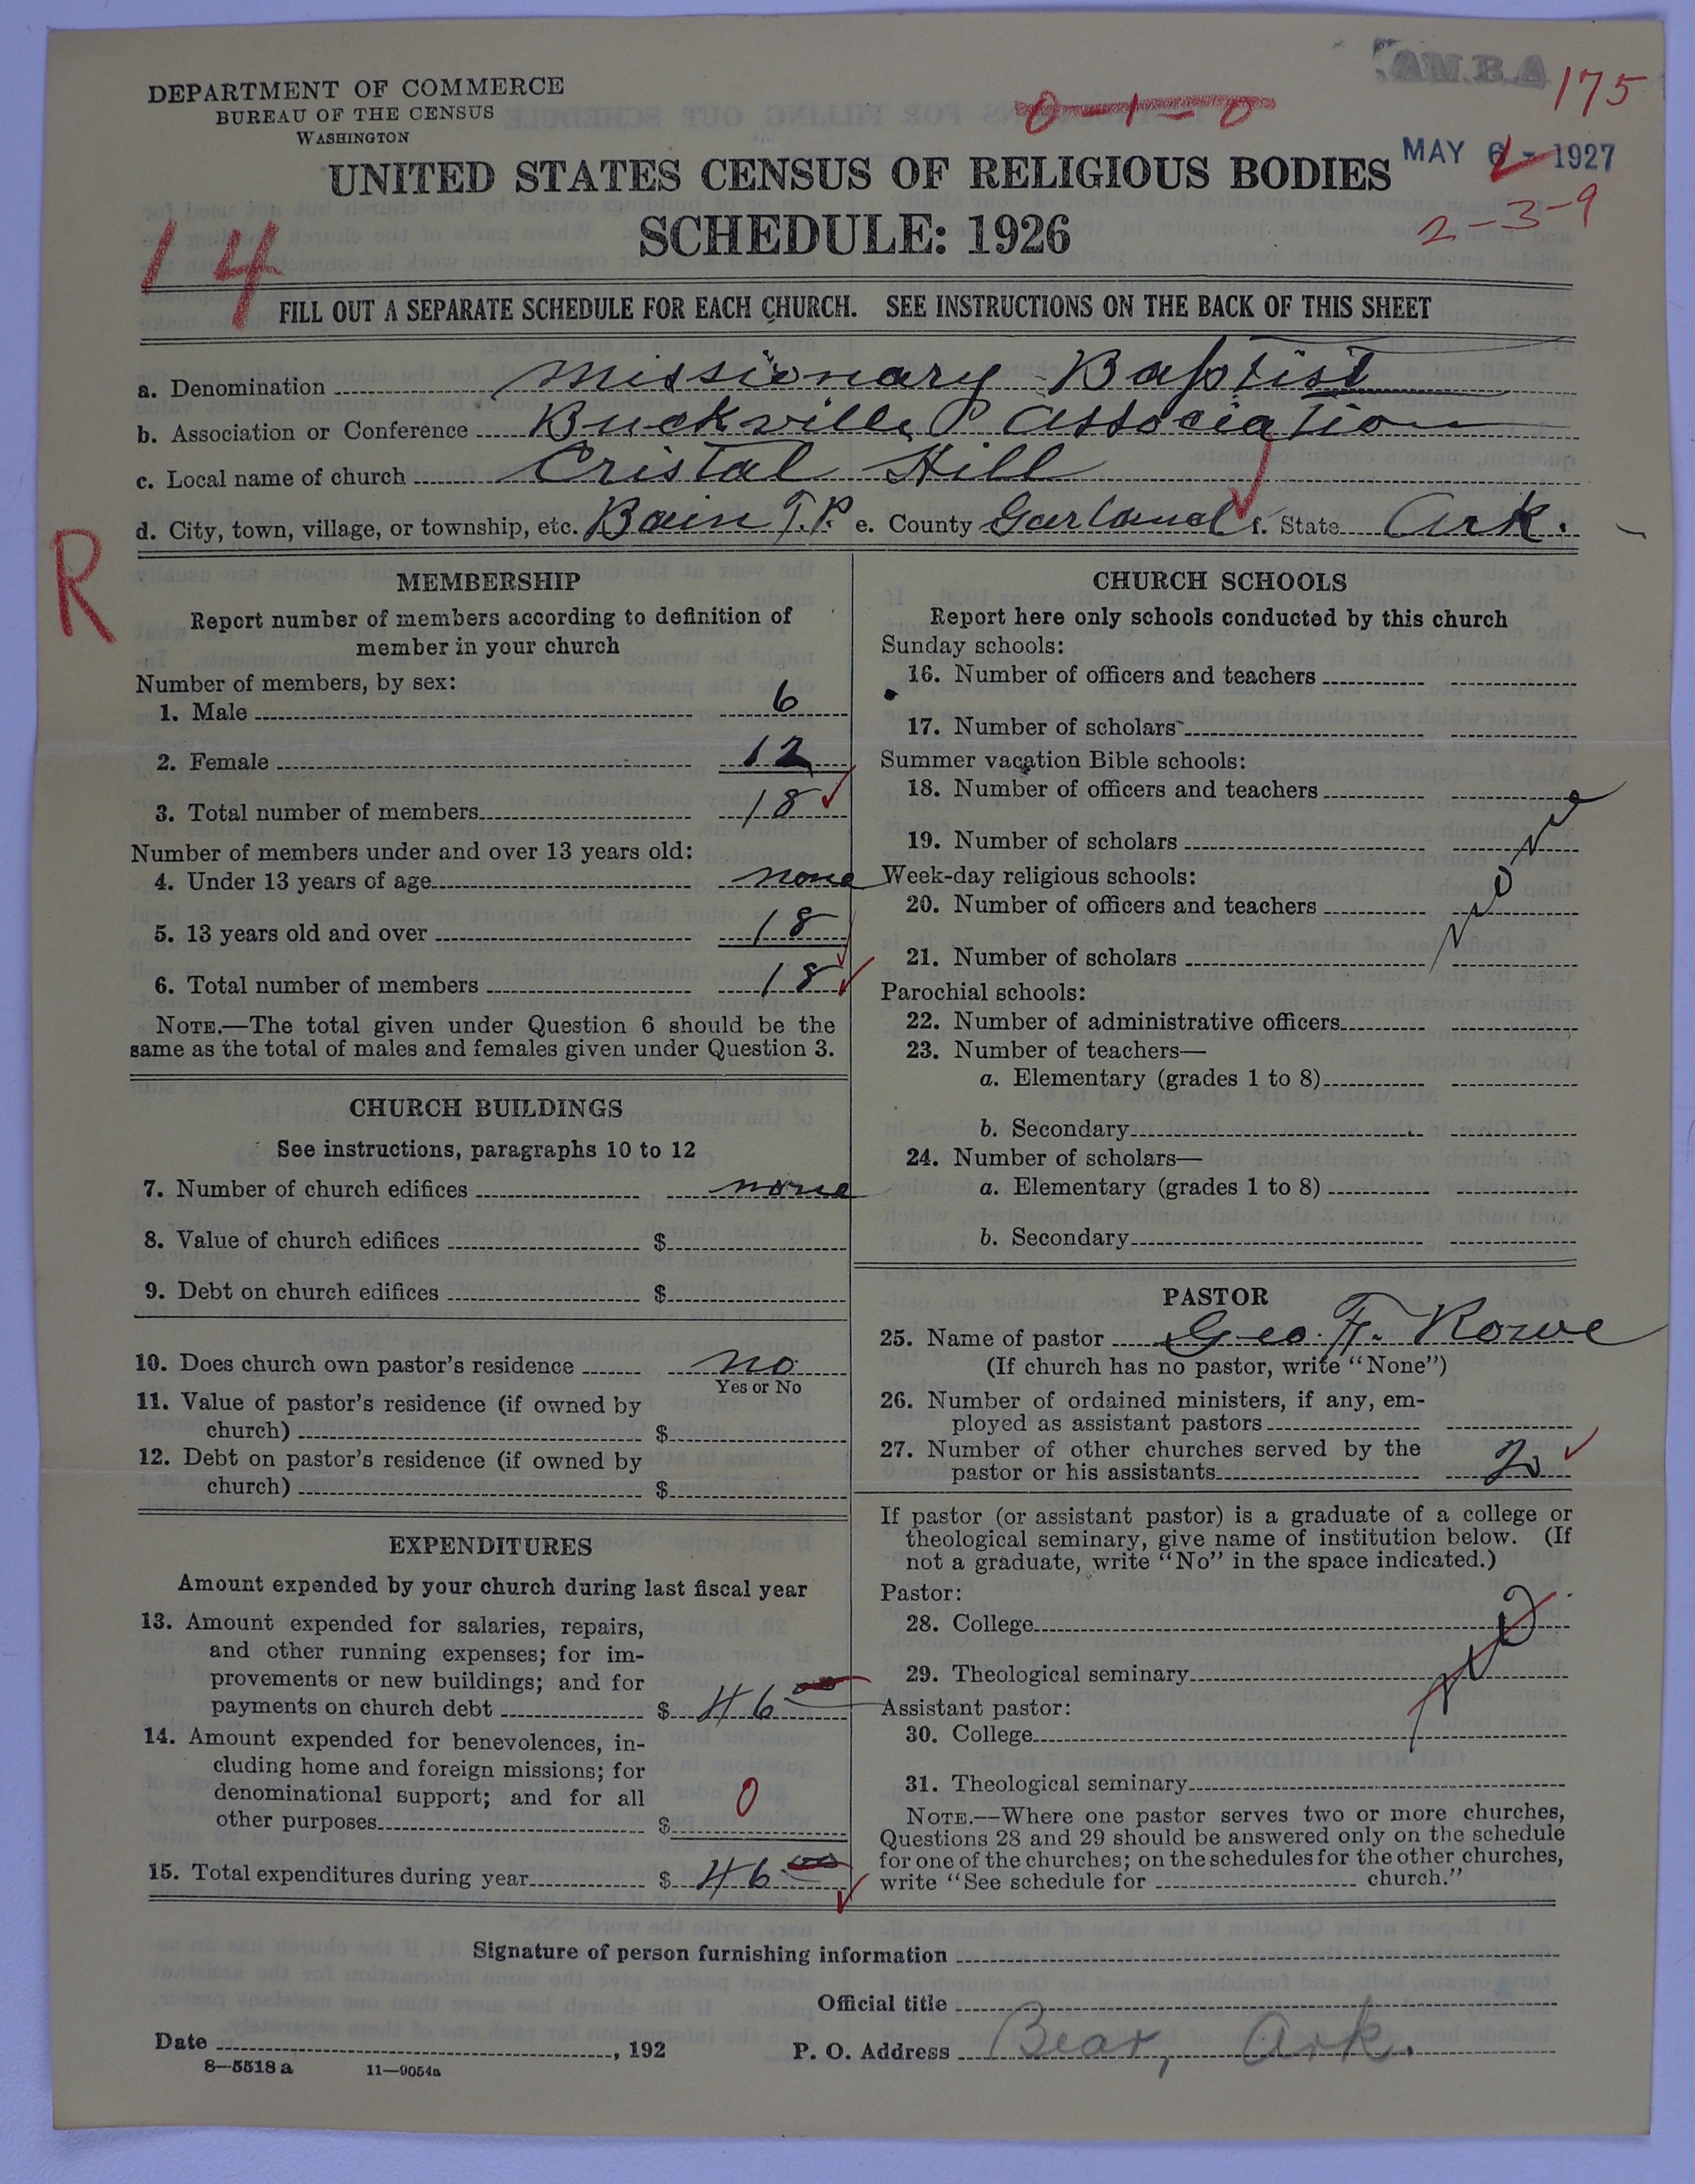 DEPARTMENT OF COMMERCE
BUREAU OF THE CENSUS
WASHINGTON
A.B.M.A.
175
0-1-0
MAY 6 - 1927
UNITED STATES CENSUS OF RELIGIOUS BODIES
SCHEDULE: 1926
2-3-9
14
FILL OUT A SEPARATE SCHEDULE FOR EACH CHURCH. SEE INSTRUCTIONS ON THE BACK OF THIS SHEET
a. Denomination Missionary Baptist
b. Association or Conference Buckville Association
c. Local name of church Cristal Hill
d. City, town, village, or township, etc. Bain T.P. e. County Garland f. State Ark.
R
MEMBERSHIP
Report number of members according to definition of
member in your church
Number of members, by sex:
1. Male 6
2. Female 12
3. Total number of members 18
Number of members under and over 13 years old:
4. Under 13 years of age none
5. 13 years old and over 18
6. Total number of members 18
NOTE.—The total given under Question 6 should be the
same as the total of males and females given under Question 3.
CHURCH BUILDINGS
See instructions, paragraphs 10 to 12
7. Number of church edifices none
8. Value of church edifices $
9. Debt on church edifices $
10. Does church own pastor's residence no
Yes or No
11. Value of pastor's residence (if owned by
church) $
12. Debt on pastor's residence (if owned by
church) $
EXPENDITURES
Amount expended by your church during last fiscal year
13. Amount expended for salaries, repairs,
and other running expenses; for im-
provements or new buildings; and for
payments on church debt $ 46 00
14. Amount expended for benevolences, in-
cluding home and foreign missions; for
denominational support; and for all
other purposes $ 0
15. Total expenditures during year $ 46 00
CHURCH SCHOOLS
Report here only schools conducted by this church
Sunday schools:
16. Number of officers and teachers
17. Number of scholars
Summer vacation Bible schools:
18. Number of officers and teachers
19. Number of scholars
Week-day religious schools:
20. Number of officers and teachers
21. Number of scholars
None
Parochial schools:
22. Number of administrative officers
23. Number of teachers—
a. Elementary (grades 1 to 8)
b. Secondary
24. Number of scholars—
a. Elementary (grades 1 to 8)
b. Secondary
PASTOR
25. Name of pastor Geo. F. Rowe
(If church has no pastor, write "None")
26. Number of ordained ministers, if any, em-
ployed as assistant pastors
27. Number of other churches served by the
pastor or his assistants 2
If pastor (or assistant pastor) is a graduate of a college or
theological seminary, give name of institution below. (If
not a graduate, write "No" in the space indicated.)
Pastor:
28. College
29. Theological seminary
No
Assistant pastor:
30. College
31. Theological seminary
NOTE.—Where one pastor serves two or more churches,
Questions 28 and 29 should be answered only on the schedule
for one of the churches; on the schedules for the other churches,
write "See schedule for church."
Signature of person furnishing information
Official title
Date , 192
P. O. Address Bear, Ark.
8—5518 a 11—9054a